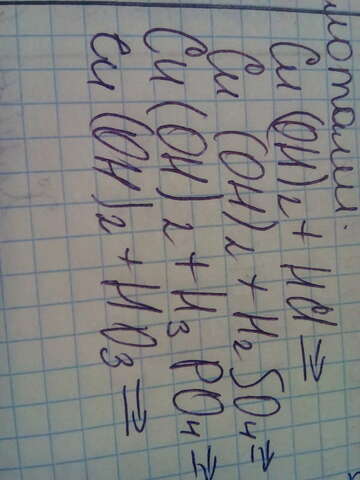 лотами.
Cu(OH)2 + HCl ⇒
Cu(OH)2 + H2SO4 ⇒
Cu(OH)2 + H3PO4 ⇒
Cu(OH)2 + HO3 ⇒